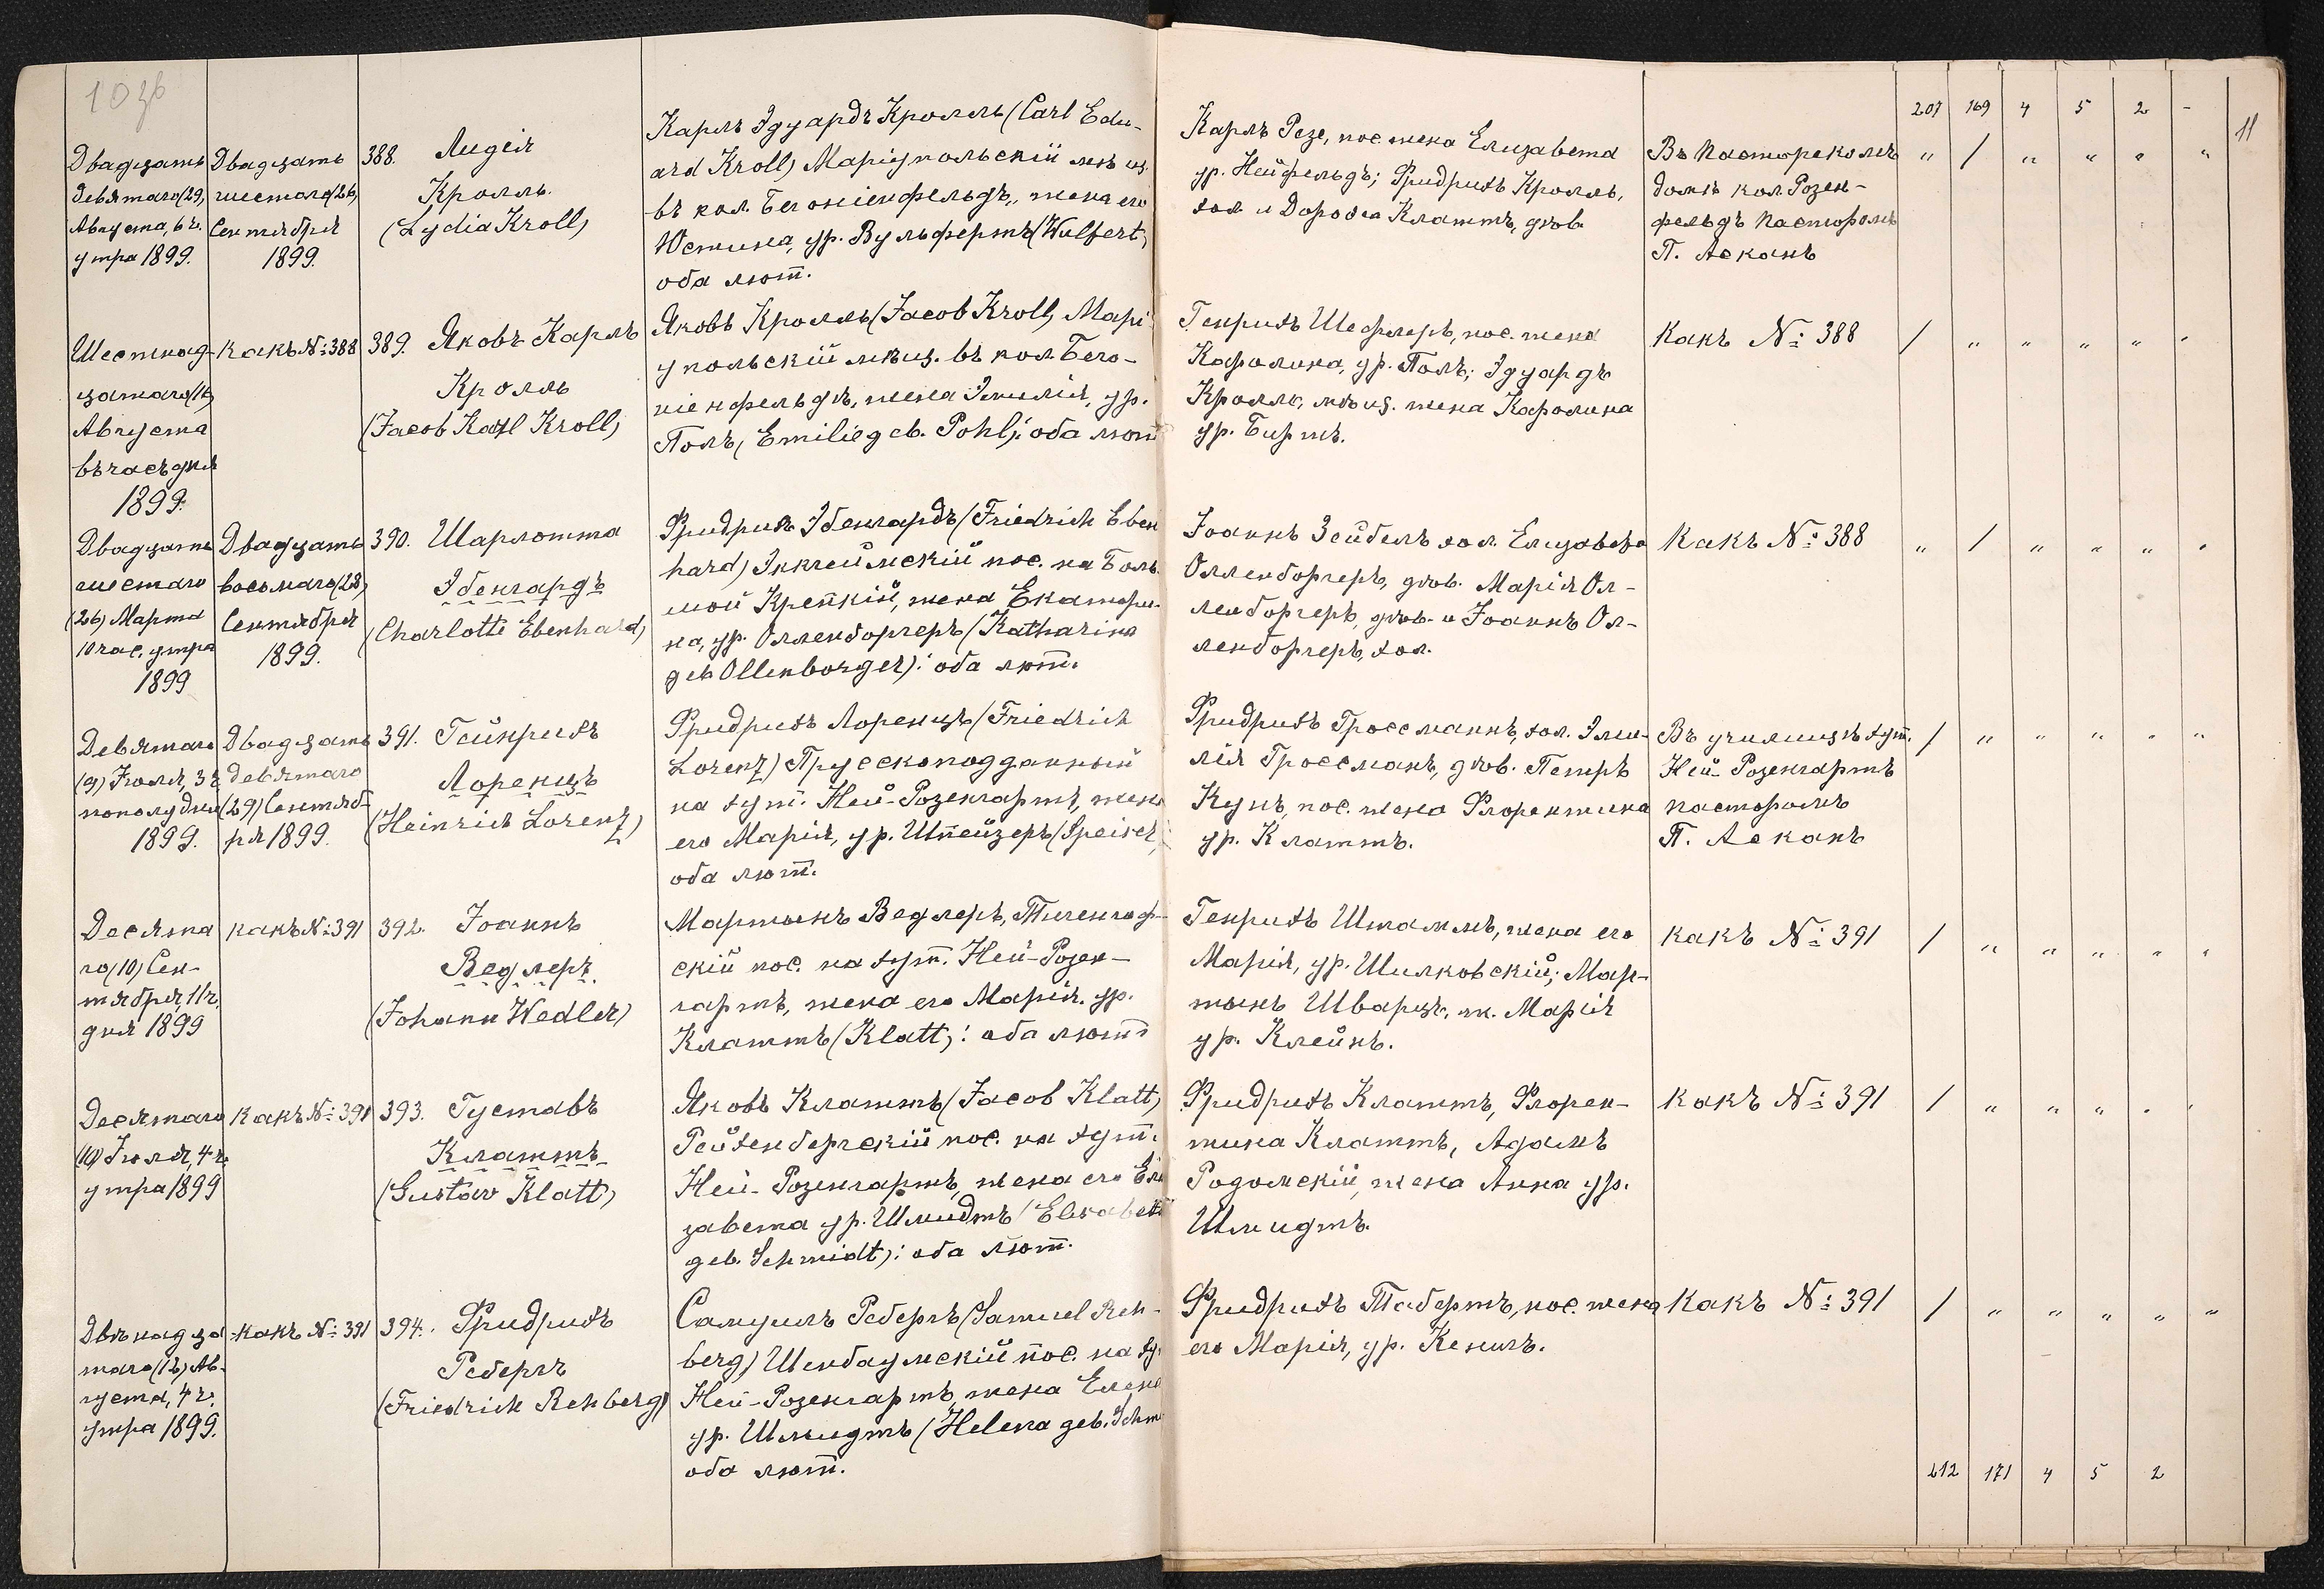 207 169 4 5 2 -
11
Двадцать
девятаго (29)
Августа, 6 ч.
утра 1899.
Двадцать
шестаго (26)
Сентября
1899.
388. Лидія
Кролль.
(Lydia Kroll)
Карлъ Эдуардъ Кролль (Carl Edu-
ard Kroll) Маріупольскій мѣщ.
въ кол. Бегоніенфельдъ, жена его
Юстина, ур. Вульфертъ (Wulfert)
оба лют.
Карлъ Резе, пос. жена Елизавета
ур. Нейфельдъ; Фридрихъ Кролль,
хол. и Доротеа Клаттъ, дѣв.
Въ Пасторскомъ
домѣ кол. Розен-
фельдъ Пасторомъ
П. Аскань
" / " " " "
Шестнад-
цатаго (16)
Августа
въ часъ дня
1899.
Какъ №: 388
389. Яковъ Карлъ
Кролль
(Jacob Karl Kroll)
Яковъ Кролль (Jacob Kroll) Марі-
упольскій мѣщ. въ кол. Бего-
ніенфельдъ, жена Эмилія, ур.
Поль, Emilie geb. Pohl): оба лют
Генрихъ Шефлеръ, пос. жена
Каролина, ур. Поль; Эдуардъ
Кролль, мѣщ. жена Каролина
ур. Биртъ.
Какъ №: 388
/ " " " " "
Двадцать
шестаго
(26) Марта
10 час. утра
1899
Двадцать
восьмаго (28)
Сентября
1899.
390. Шарлотта
Эбенгардъ
(Charlotte Ebenhard)
Фридрихъ Эбенгардъ (Friedrich Eben
hard) Энкгеймскій пос. на Боль-
шой Крепкій, жена Екатери-
на, ур. Олленборгеръ (Katharina
geb Ollenborger): оба лют.
Іоаннъ Зейбель хол. Елизавета
Олленборгеръ, дѣв. Марія Ол-
ленборгеръ, дѣв. и Іоаннъ Ол-
ленборгеръ, хол.
Какъ №: 388
" / " " " "
Девятаго
(9) Іюля, 3 ч
пополудни
1899.
Двадцать
девятаго
(29) Сентяб-
ря 1899.
391. Гейнрихъ
Лоренцъ
(Heinrich Lorenz)
Фридрихъ Лоренцъ (Friedrich
Lorenz) Прусскоподданный
на хут. Ней-Розенгартъ, жена
его Марія, ур. Шпейзеръ (Speiser)
оба лют.
Фридрихъ Гроссманнъ, хол. Эми-
лія Гроссманъ, дѣв. Петръ
Кунъ, пос. жена Флорентина
ур. Клаттъ.
Въ училищѣ хут.
Ней-Розенгартъ
пасторомъ
П. Аскань
/ " " " " "
Десята
го (10) Сен-
тября, 11 ч.
дня 1899
какъ №: 391
392. Іоаннъ
Ведлеръ
(Johann Wedler)
Мартынъ Ведлеръ, Тигенгоф-
скій пос. на хут. Ней-Розен-
гартъ, жена его Марія. ур.
Клаттъ (Klatt): оба лют
Генрихъ Штаммъ, жена его
Марія, ур. Шилковскій; Мар-
тынъ Шварцъ, ж. Марія
ур. Клейнъ.
какъ №: 391
/ " " " " "
Десятаго
(10) Іюля, 4 ч.
утра 1899
какъ №: 391
393. Густавъ
Клаттъ
(Gustav Klatt)
Яковъ Клаттъ (Jacob Klatt)
Рейхенбергскій пос. на хут.
Ней-Розенгартъ, жена его Ели
завета ур. Шмидтъ (Elisabeth
geb. Schmidt): оба лют.
Фридрихъ Клаттъ, Флорен-
тина Клаттъ, Адамъ
Родомскій, жена Анна ур.
Шмидтъ.
какъ №: 391
/ " " " " "
Двѣнадца
таго (12) Ав-
густа, 4 ч.
утра 1899.
какъ №: 391
394. Фридрихъ
Ребергъ
(Friedrich Rehberg)
Самуилъ Ребергъ (Samuel Reh-
berg) Шенбаумскій пос. на ху
Ней-Розенгартъ, жена Елена
ур. Шмидтъ (Helena geb. Schm
оба лют.
Фридрихъ Табертъ, пос. жена
его Марія, ур. Кенигъ.
какъ №: 391
/ " " " " "
212 171 4 5 2